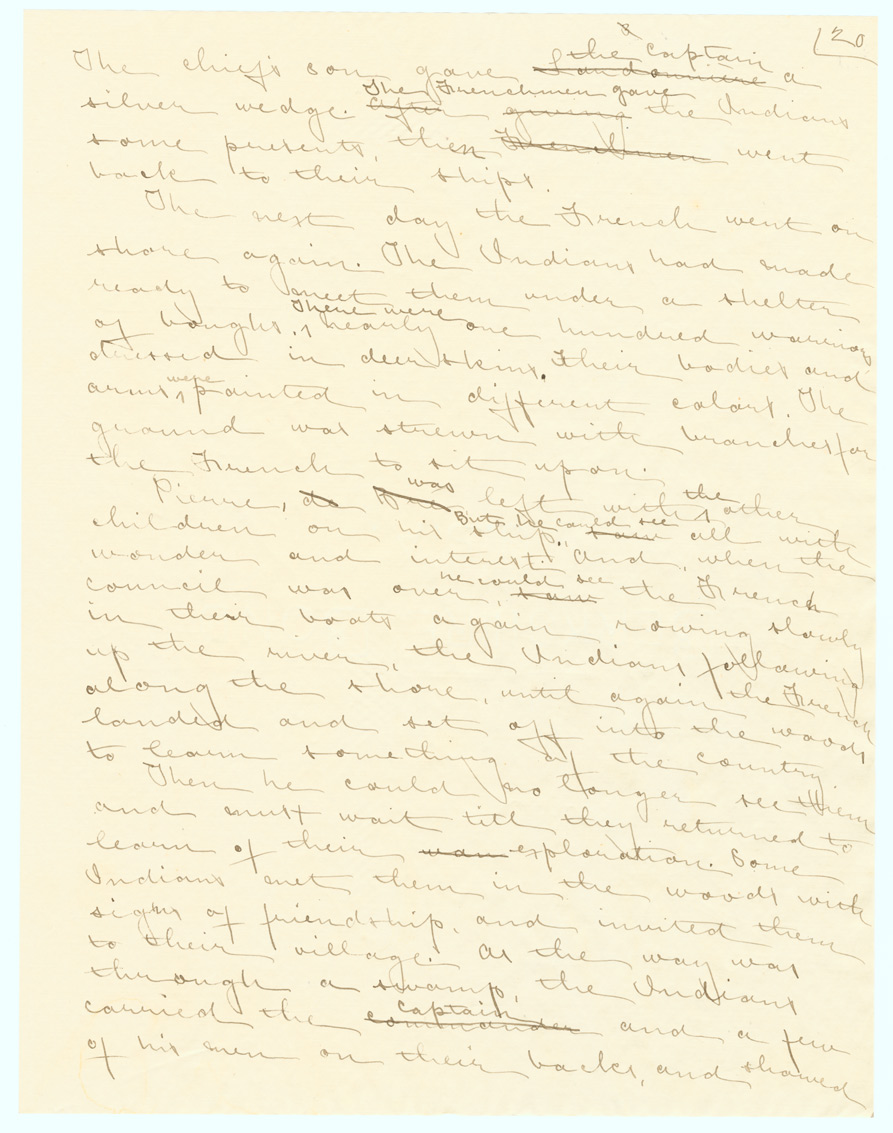 20
The chief's son gave Laudonnière the captain a
silver wedge. After The Frenchmen gave giving the Indians
some presents, then Frenchmen went
back to their ships.
The next day the French went on
shore again. The Indians had made
ready to meet them under a shelter
of boughs. There were nearly one hundred warriors
dressed in deer skins. Their bodies and
arms were painted in different colors. The
ground was strewn with branches for
the French to sit upon.
Pierre, was left with the other
children on his ship. But he could see saw all with
wonder and interest. And, when the
council was over, he could see saw the French
in their boats again rowing slowly
up the river, the Indians following
along the shore, until again the French
landed and set off into the woods
to learn something of the country.
Then he could no longer see them
and must wait till they returned to
learn of their exploration. Some
Indians met them in the woods with
signs of friendship, and invited them
to their village. As the way was
through a swamp, the Indians
carried the commander captain and a few
of his men on their backs, and showed